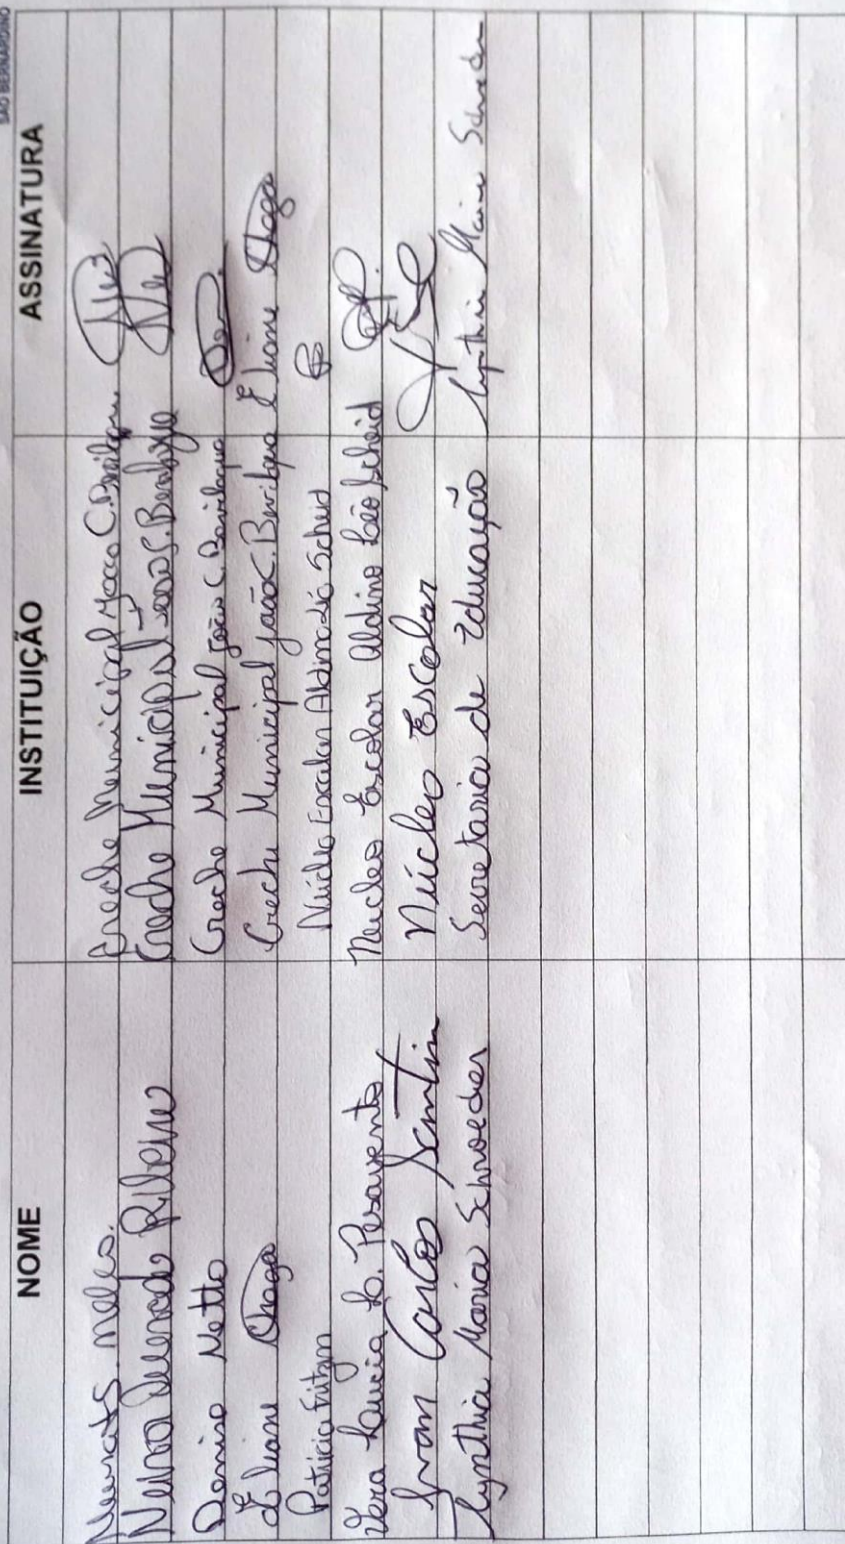 SÃO BERNARDINO
NOME INSTITUIÇÃO ASSINATURA
Mello. Creche Municipal C.
Neiva Ribeiro Creche Municipal
Denise Netto Creche Municipal João C. Bevilaqua
Eliane Chaga Creche Municipal João C. Bevilaqua Eliane Chaga
Patricia Núcleo Escolar Aldino Léo Scheid
Vera Lucia L. Pesavento Nucleo Escolar Aldino Léo Scheid
Ivan Carlos Santin Núcleo Escolar
Cynthia Maria Schroeder Secretaria de Educação Cynthia Maria